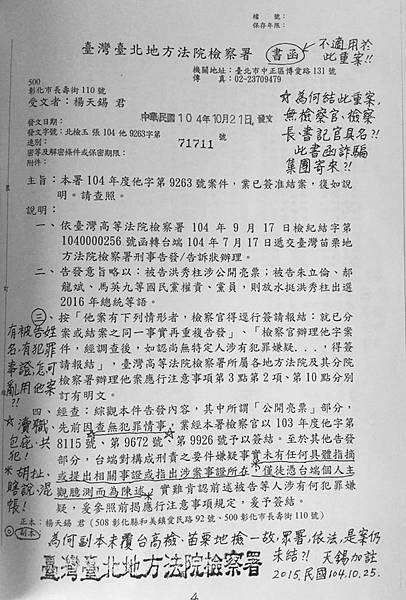 檔　號：
保存年限：
臺灣臺北地方法院檢察署 書函
不適用於
此重案!!
機關地址：臺北市中正區博愛路 131 號
傳真：02-23709479
500
彰化市長壽街 110 號
受文者：楊天錫 君
發文日期：中華民國 104年10月21日 發文
發文字號：北檢玉 張 104 他 9263字第 71711 號
速別：
密等及解密條件或保密期限：
附件：
☆為何結此重案,
無檢察官、檢察
長、書記官具名?!
此書函詐騙
集團寄來?!
主旨：本署 104 年度他字第 9263號案件，業已簽准結案，復如說
明。請查照。
說明：
一、依臺灣高等法院檢察署 104 年 9 月 17 日檢紀結字第
1040000256 號函轉台端 104 年 7 月 17 日遞交臺灣苗栗地
方法院檢察署刑事告發/告訴狀辦理。
二、告發意旨略以：被告洪秀柱涉公開亮票；被告朱立倫、郝
龍斌、馬英九等國民黨權貴、黨員，則放水挺洪秀柱出選
2016 年總統等語。
三、按「他案有下列情形者，檢察官得逕行簽請報結：就已分
案或結案之同一事實再重複告發」、「檢察官辦理他字案
件，經調查後，如認尚無特定人涉有犯罪嫌疑...，得簽
請報結」，臺灣高等法院檢察署所屬各地方法院及其分院
檢察署辦理他案應行注意事項第 3 點第 2 項、第 10 點分別
訂有明文。
有被告姓
名、有犯罪
事證怎可
亂用他案
?!!
四、經查：綜觀本件告發內容，其中所謂「公開亮票」部分，
先前因查無犯罪情事，業經本署檢察官以 103 年度他字第
8115 號、第 9672 號、第 9926 號予以簽結。至於其他告發
部分，台端對構成刑責之要件嫌疑事實未有任何具體指摘
或提出相關事證或指出涉案事證所在，僅徒憑台端個人主
觀臆測而為陳述，實難肯認前述被告等人涉有何犯罪嫌
疑，爰參照前揭應行注意事項規定，爰予簽結。
☆瀆職、
包庇、共
犯!
※胡扯、
瞎說、混
帳!
正本：楊天錫 君（508 彰化縣和美鎮愛民路 92 號、500 彰化市長壽街 110 號）
副本：
為何副本未覆台高檢、苗栗地檢一故，眾署、依法，是案仍
未結?! 天錫加註
2015,民國104.10.25.
臺灣臺北地方法院檢察署